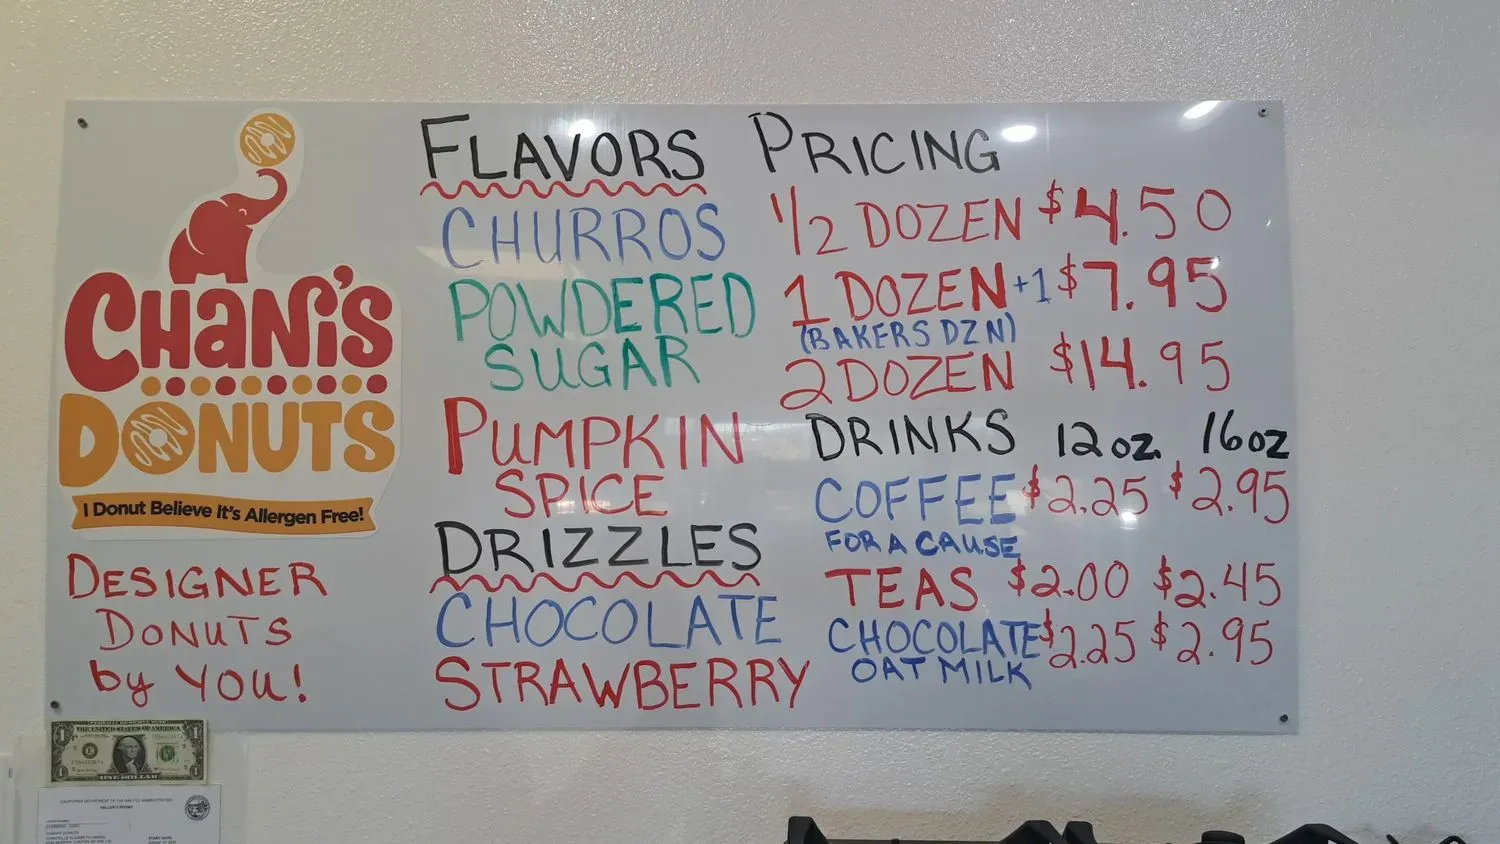 CHANi'S
DONUTS
I Donut Believe It's Allergen Free!
DESIGNER
DONUTS
by YOU!
FLAVORS
CHURROS
POWDERED
SUGAR
PUMPKIN
SPICE
DRIZZLES
CHOCOLATE
STRAWBERRY
PRICING
1/2 DOZEN $4.50
1 DOZEN +1 $7.95
(BAKERS DZN)
2 DOZEN $14.95
DRINKS 12oz. 16oz
COFFEE $2.25 $2.95
FOR A CAUSE
TEAS $2.00 $2.45
CHOCOLATE $2.25 $2.95
OAT MILK
FEDERAL RESERVE NOTE
THE UNITED STATES OF AMERICA
ONE DOLLAR
CALIFORNIA DEPARTMENT OF TAX AND FEE ADMINISTRATION
SELLER'S PERMIT
START DATE